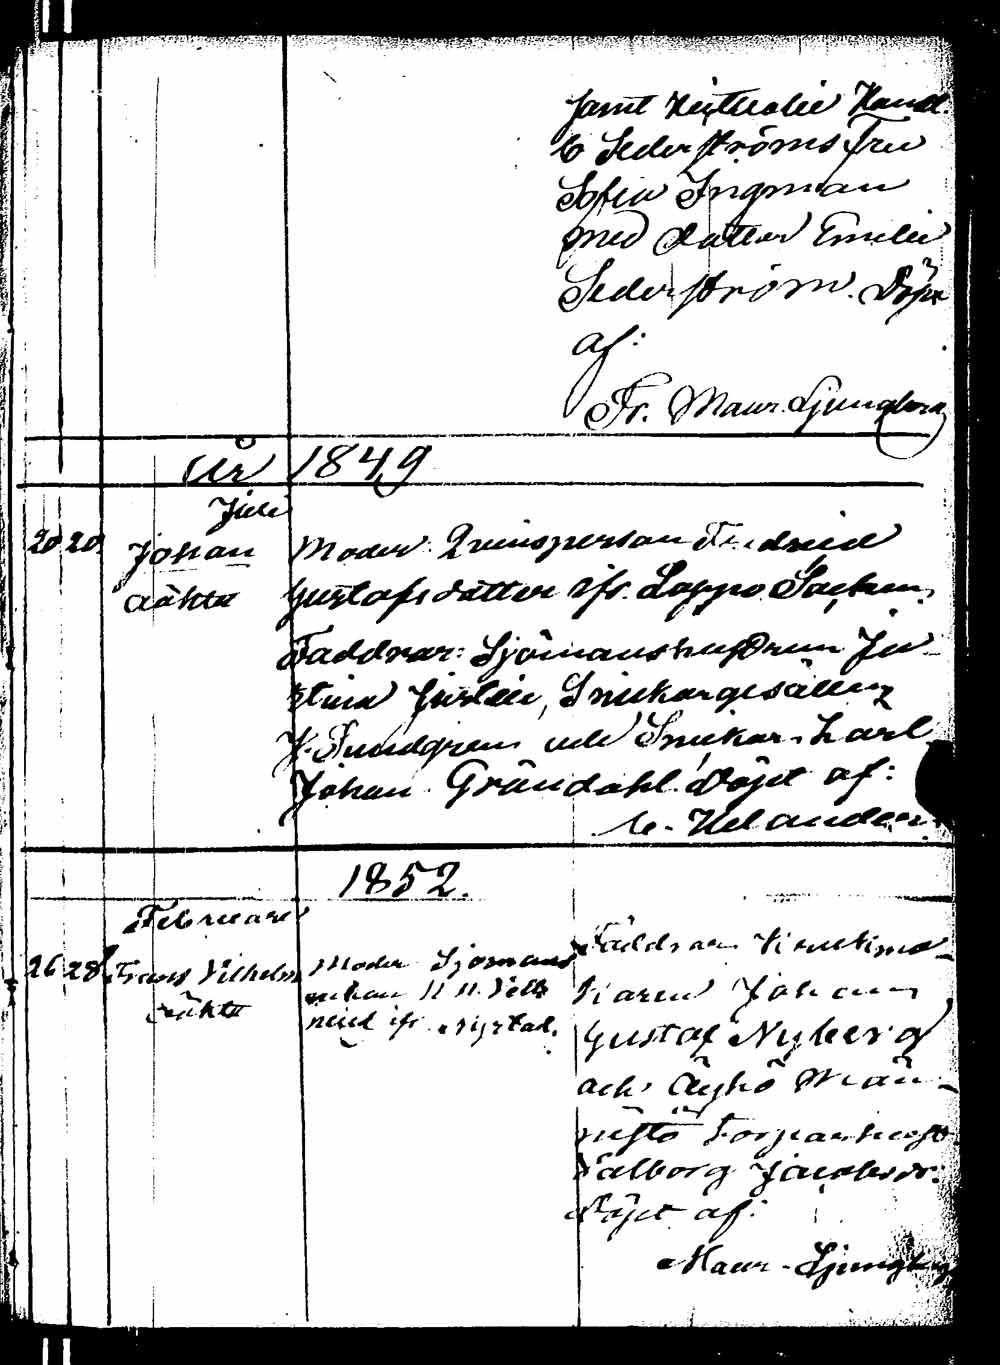 samt Handl.
C Sederströms Fru
Sofia Ingman
med dotter Emelie
Sederström. Döpt
af:
Fr. Maur. Ljungberg
År 1849
Juli
20 20 Johan Moder: Qvinsperson Fredrica
oäkta Gustafsdotter ifr. Loppo Socken.
Faddrar: Sjömanshustrun Ju-
stina Snickargesällen
och Snickar. Carl
Johan Gröndahl. Döpt af:
C. Helander.
1852.
Februari
26 28 Frans Vilhelm Moder Sjömans
oäkta enkan
ifr. Nystad.
Faddrar Krukma-
karen Johan
Gustaf Nyberg
och Äyhö Män-
nistö Torparhust.
Valborg Jacobsdr.
Döpt af:
Maur. Ljungberg